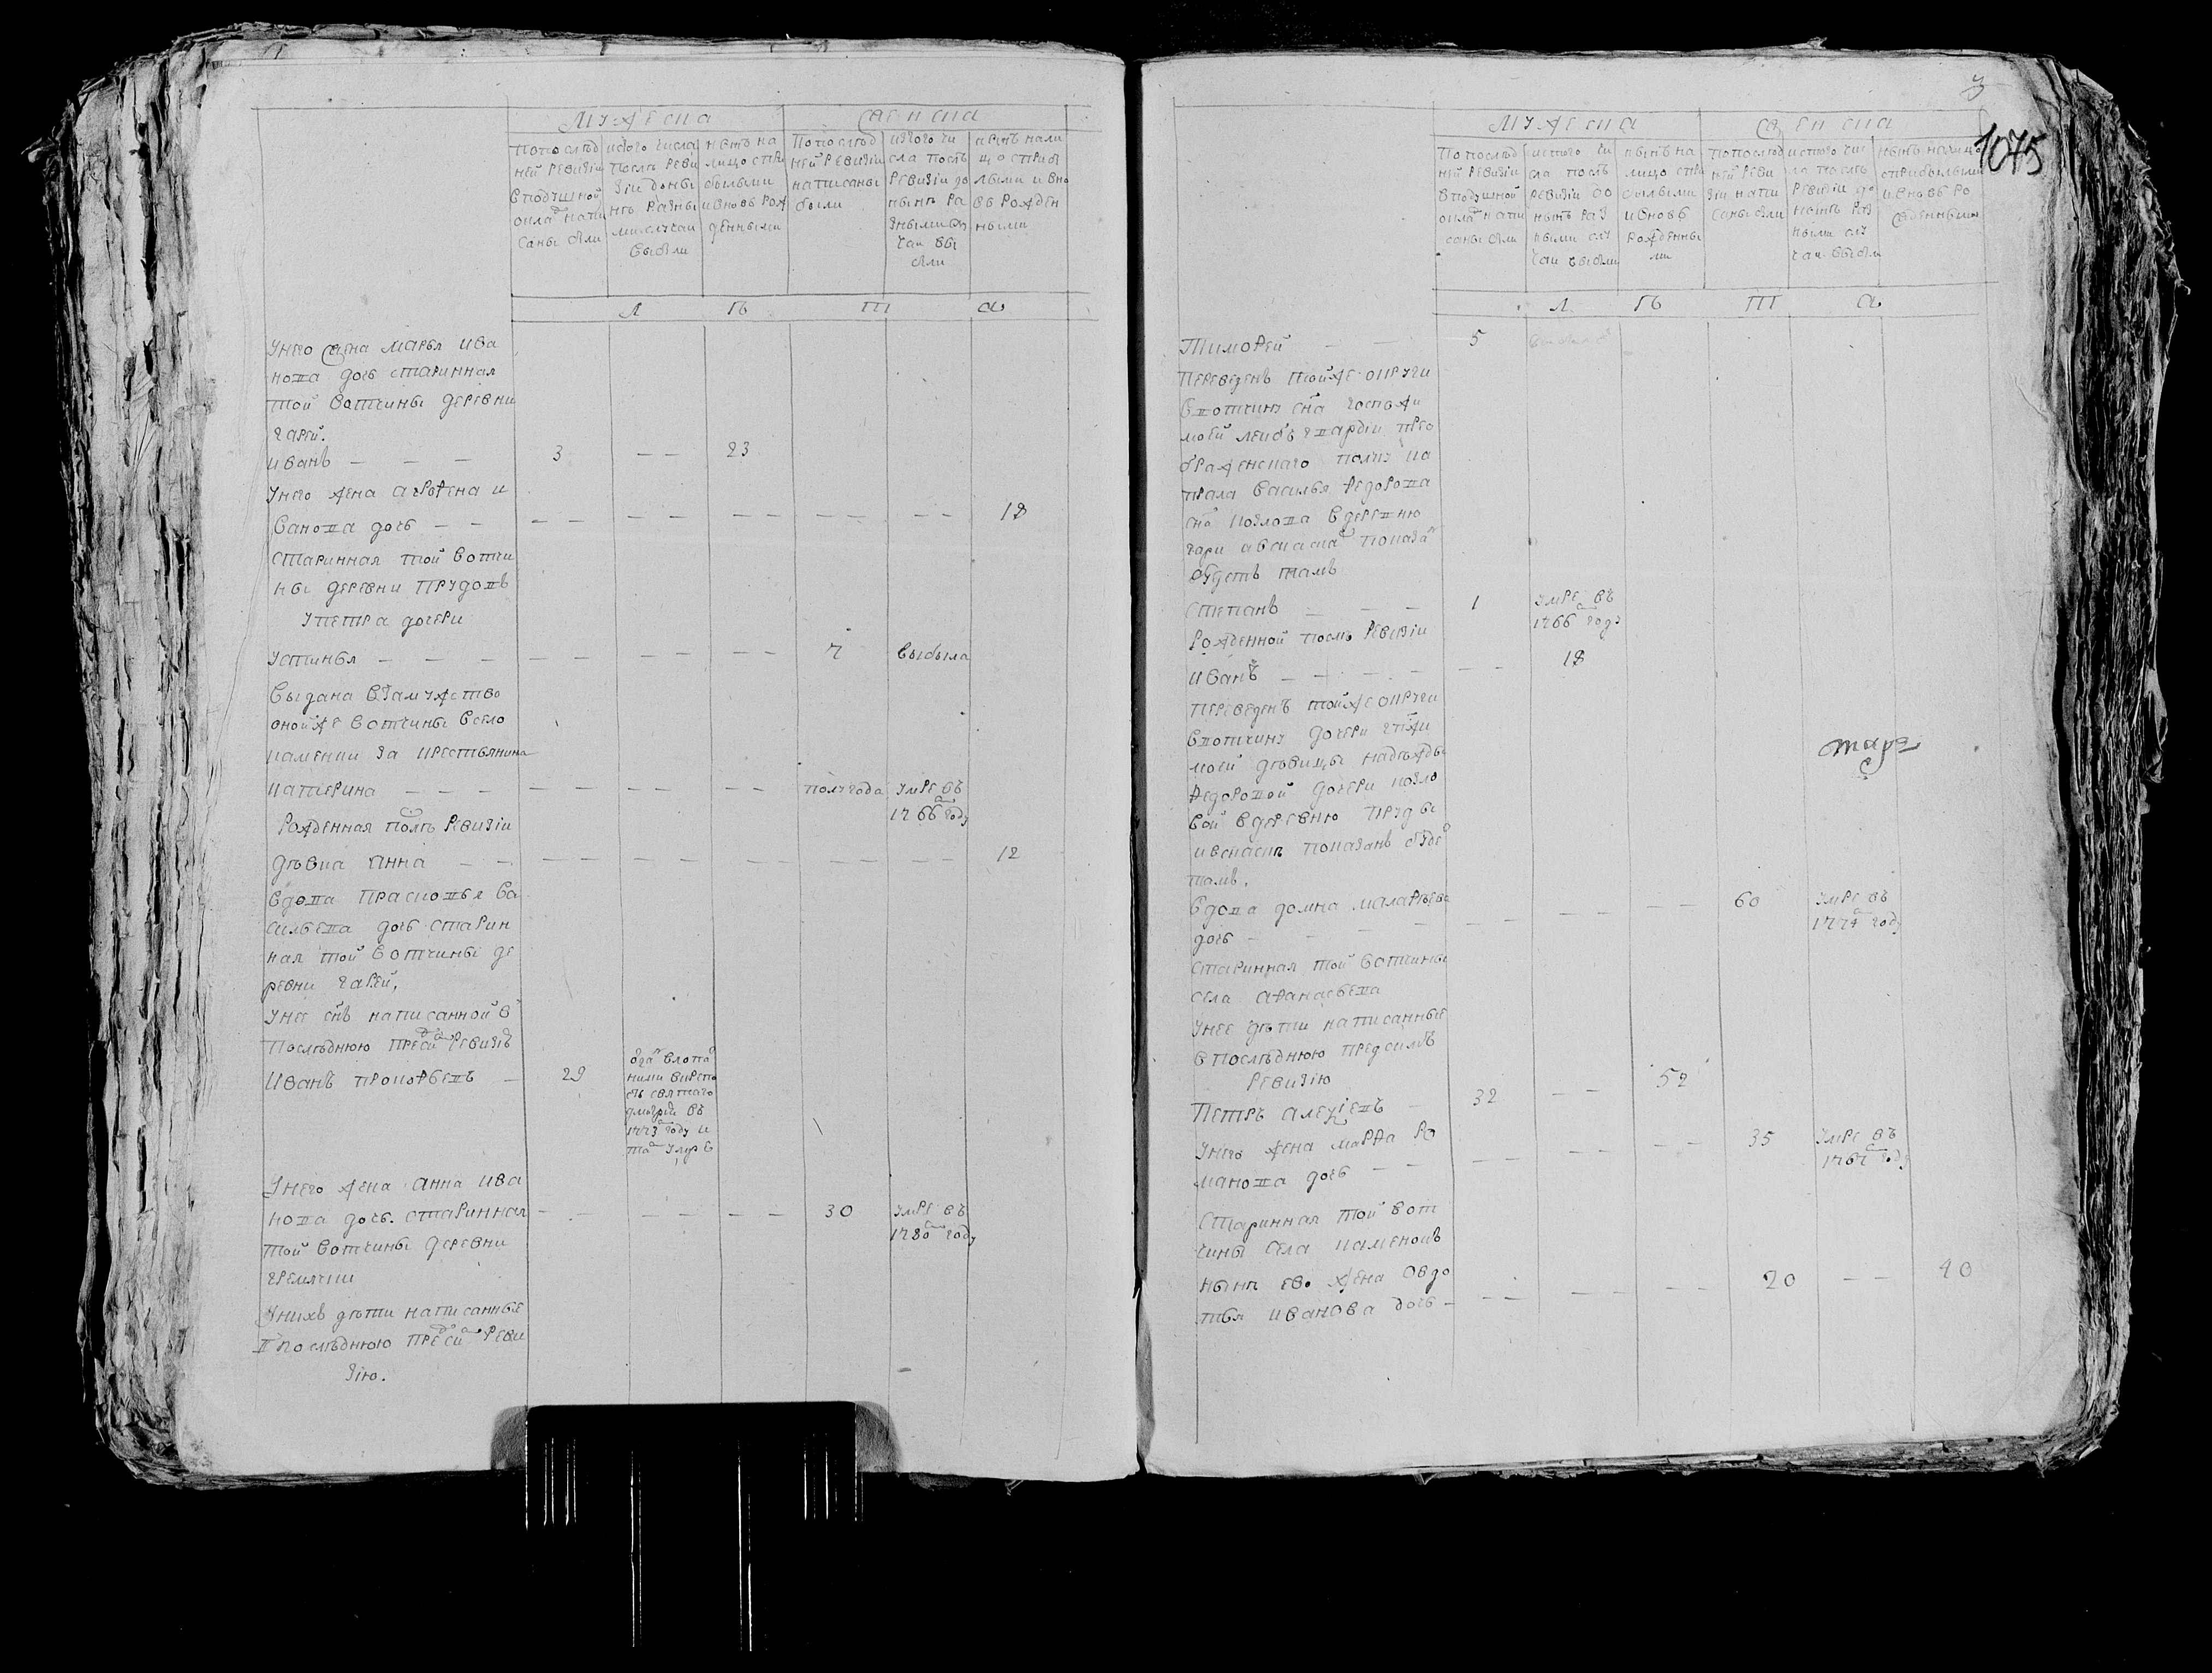 мужеска
женска
По послѣд
ней ревизіи
в подушной
окла᷃ напи
саны были
ис того числа
послѣ реви
зіи доны
нѣ разны
ми случаи
выбыли
нынѣ на
лицо с при
былыми
и вновь рож
денными
По послѣд
ней ревизіи
написаны
были
ис того чи
сла послѣ
ревизіи до
нынѣ ра
зными слу
чаи вы
были
нынѣ нали
цо с приб
лыми и вно
вь рожден
ными
Л Ѣ Т А
У него жена Марья Ива
нова дочь старинная
той вотчины деревни
Гарей.
Иванъ — — — 3 — — 23
У него жена Агрофена И
ванова дочь — — — — — — — — — — — — 18
старинная той вотчи
ны деревни Прудовъ
У Петра дочери
Устинья — — — — — — — — — 7 выбыла
выдана в замужство
оной же вотчины в село
Каменки за крестьянина
Катерина — — — — — — — — — полугода умре въ
1766 году
Рожденная послѣ ревизіи
дѣвка Анна — — — — — — — — — — — — 12
Вдова Прасковья Ва
сильева дочь старин
ная той вотчины де
ревни Гарей,
У нее сн҃ъ написанной в
последнюю пре сим ревизію
Иванъ Прокофьевъ — 29
1773 году и
та᷃ умре
У него жена Анна Ива
нова дочь. старинная — — — — — — 30 умре въ
той вотчины деревни
1780 году
Гремячки
У нихъ дѣти написанные
в последнюю пре сим реви
зію.
3
1075
мужеска
женска
По послѣд
ней ревизіи
в подушной
окла᷃ напи
саны были
ис того чи
сла послѣ
ревизіи до
нынѣ раз
ными слу
чаи выбыли
нынѣ на
лицо с при
былыми
и вновь
рожденны
ми
По послѣд
ней реви
зіи напи
саны были
ис того чи
сла послѣ
ревизіи до
нынѣ раз
ными слу
чаи выбыли
нынѣ на лицо
с прибылыми
и вновь ро
жденными
Л Ѣ Т А
Тимофей — — 5
Переведенъ той же округи
в вотчину сн҃а госпожи
моей лейбъ гвардіи Прео
браженскаго полку ка
прала Василья Федорова
сн҃а Козлова в деревню
Гари а в сказка᷃ показа᷃
будетъ тамъ
Степанъ — — — 1 умре въ
1766 году
Рожденной послѣ ревизіи
Иванъ — — — — — — 18
Переведенъ той же округи
в вотчину дочери гпжи
моей дѣвицы Надежды
Федоровой дочери Козло
вой в деревню Пруды
и в сказкѣ показанъ буде᷃
тамъ.
Вдова Домна Малафѣева — — — — — — 60 умре въ
дочь — — — —
1774 году
старинная той вотчины
села Афанасьева
У нее дѣти написанные
в последнюю пред симъ
ревизію
Петръ Алексѣевъ — 32 — — 52
У него жена Марфа Ро — — — — — — 35 умре въ
манова дочь — —
1767 году
старинная той вот
чины села Каменокъ
нынѣ ево жена Овдо
тья Иванова дочь — — — — — — — 20 — — 40